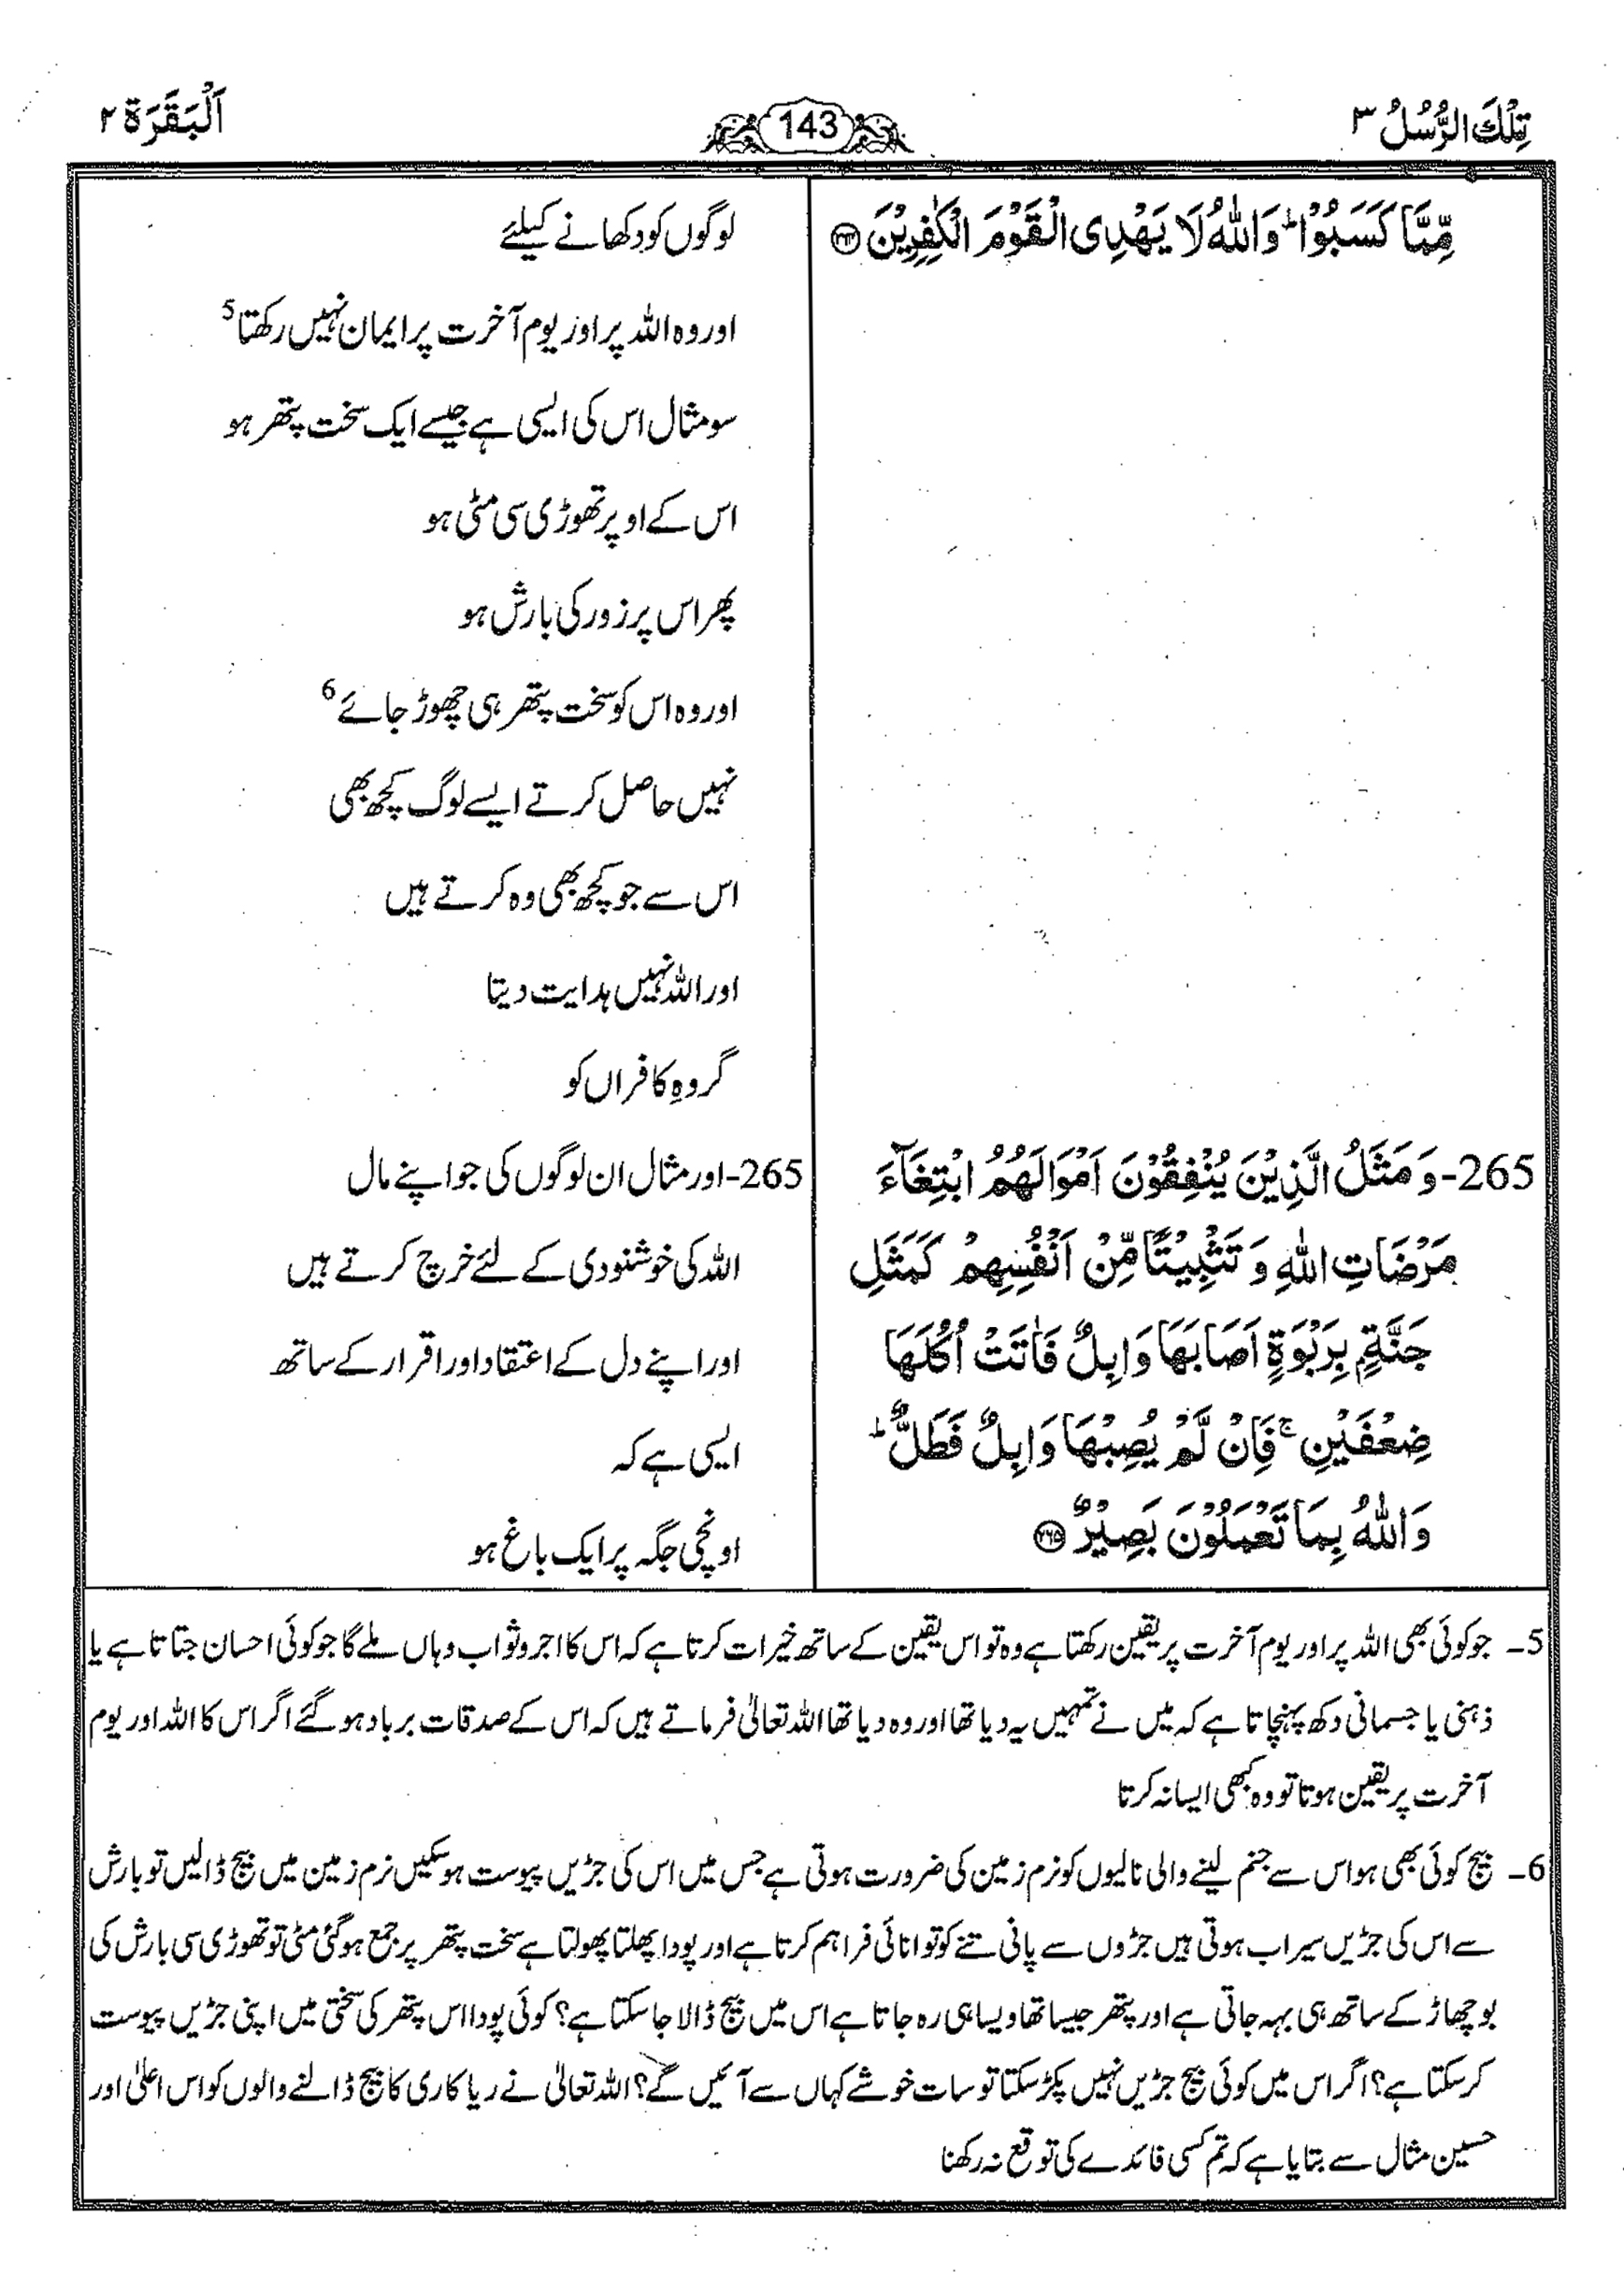 تِلْكَ الرُّسُلُ ٣
143
اَلْبَقَرَة ٢
مِّمَّا كَسَبُوْا ؕ وَاللّٰهُ لَا يَهْدِى الْقَوْمَ الْكٰفِرِيْنَ ﴿۲۶۴﴾
265- وَ مَثَلُ الَّذِيْنَ يُنْفِقُوْنَ اَمْوَالَهُمُ ابْتِغَآءَ
مَرْضَاتِ اللّٰهِ وَ تَثْبِيْتًا مِّنْ اَنْفُسِهِمْ كَمَثَلِ
جَنَّةٍۭ بِرَبْوَةٍ اَصَابَهَا وَابِلٌ فَاٰتَتْ اُكُلَهَا
ضِعْفَيْنِ ۚ فَاِنْ لَّمْ يُصِبْهَا وَابِلٌ فَطَلٌّ ؕ
وَاللّٰهُ بِمَا تَعْمَلُوْنَ بَصِيْرٌ ﴿۲۶۵﴾
لوگوں کو دکھانے کیلئے
اور وہ اللہ پر اور یوم آخرت پر ایمان نہیں رکھتا 5
سو مثال اس کی ایسی ہے جیسے ایک سخت پتھر ہو
اس کے اوپر تھوڑی سی مٹی ہو
پھر اس پر زور کی بارش ہو
اور وہ اس کو سخت پتھر ہی چھوڑ جائے 6
نہیں حاصل کرتے ایسے لوگ کچھ بھی
اس سے جو کچھ بھی وہ کرتے ہیں
اور اللہ نہیں ہدایت دیتا
گروہِ کافراں کو
265- اور مثال ان لوگوں کی جو اپنے مال
اللہ کی خوشنودی کے لئے خرچ کرتے ہیں
اور اپنے دل کے اعتقاد اور اقرار کے ساتھ
ایسی ہے کہ
اونچی جگہ پر ایک باغ ہو
5۔ جو کوئی بھی اللہ پر اور یوم آخرت پر یقین رکھتا ہے وہ تو اس یقین کے ساتھ خیرات کرتا ہے کہ اس کا اجر و ثواب وہاں ملے گا جو کوئی احسان جتاتا ہے یا
ذہنی یا جسمانی دکھ پہنچاتا ہے کہ میں نے تمہیں یہ دیا تھا اور وہ دیا تھا اللہ تعالیٰ فرماتے ہیں کہ اس کے صدقات برباد ہو گئے اگر اس کا اللہ اور یوم
آخرت پر یقین ہوتا تو وہ کبھی ایسا نہ کرتا
6۔ بیج کوئی بھی ہو اس سے جنم لینے والی نالیوں کو نرم زمین کی ضرورت ہوتی ہے جس میں اس کی جڑیں پیوست ہو سکیں نرم زمین میں بیج ڈالیں تو بارش
سے اس کی جڑیں سیراب ہوتی ہیں جڑوں سے پانی تنے کو توانائی فراہم کرتا ہے اور پودا پھلتا پھولتا ہے سخت پتھر پر جمع ہو گئی مٹی تو تھوڑی سی بارش کی
بوچھاڑ کے ساتھ ہی بہہ جاتی ہے اور پتھر جیسا تھا ویسا ہی رہ جاتا ہے اس میں بیج ڈالا جا سکتا ہے؟ کوئی پودا اس پتھر کی سختی میں اپنی جڑیں پیوست
کر سکتا ہے؟ اگر اس میں کوئی بیج جڑیں نہیں پکڑ سکتا تو سات خوشے کہاں سے آئیں گے؟ اللہ تعالیٰ نے ریا کاری کا بیج ڈالنے والوں کو اس اعلیٰ اور
حسین مثال سے بتایا ہے کہ تم کسی فائدے کی توقع نہ رکھنا